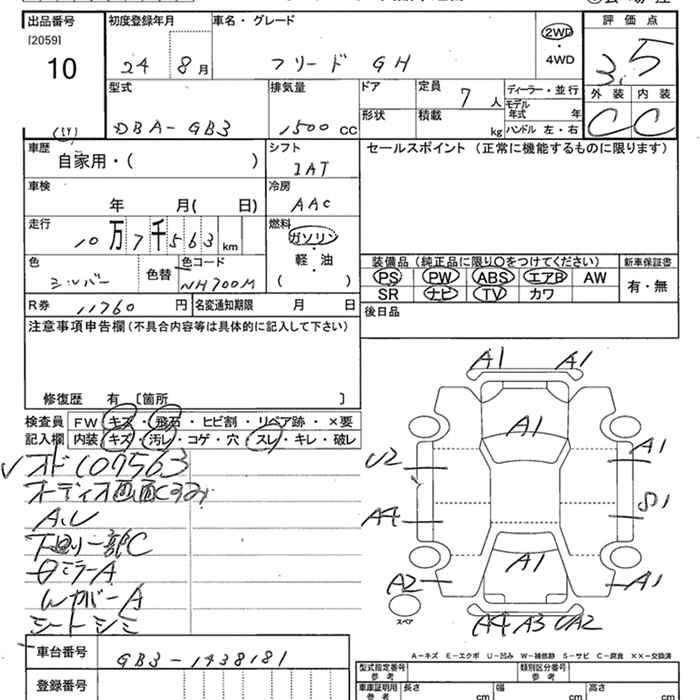 出品番号 初度登録年月 車名・グレード 評価点
[2059]
10 24 8月 フリード GH 2WD・4WD 3.5
型式 排気量 ドア 定員 7人 ディーラー・並行 外装 内装
DBA-GB3 1500cc 形状 積載 kg モデル年式 年 C C
ハンドル 左・右
車歴 シフト セールスポイント (正常に機能するものに限ります)
自家用・( ) IAT
車検 冷房
年 月( 日) AAC
走行 燃料
10万7千563km ガソリン・軽・油
( )
色 色替 色コード
シルバー NH700M
装備品(純正品に限り○をつけてください) 新車保証書
PS PW ABS エアB AW 有・無
SR ナビ TV カワ
R券 11760円 名変通知期限 月 日
後日品
注意事項申告欄(不具合内容等は具体的に記入して下さい)
修復歴 有 [箇所 ]
検査員 FW キズ・飛石・ヒビ割・リペア跡・×要
記入欄 内装 キズ・汚レ・コゲ・穴・スレ・キレ・破レ
✓オド109563
オーディオ画面くすみ
A.U
下回り一部C
A
カバーA
シートシミ
A1 A1
A1
U2 A1
A4 S1
A1
A2 A1
スペア
A4 A3 UA2
A-キズ E-エクボ U-凹み W-補修跡 S-サビ C-腐食 ××-交換済
車台番号 GB3-1438181
登録番号
型式指定番号 参考 類別区分番号 参考
車庫証明用 参考 長さ cm 幅 cm 高さ cm